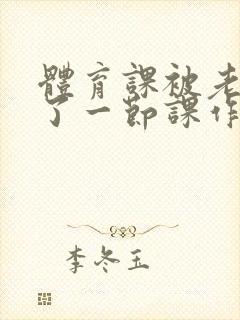 體育課被老
了一節課作
李冬玉